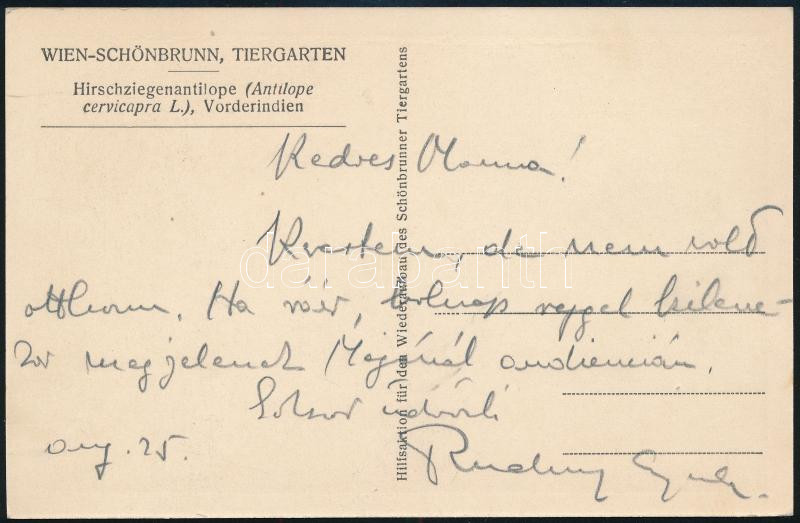 WIEN-SCHÖNBRUNN, TIERGARTEN
Hirschziegenantilope (Antilope
cervicapra L.), Vorderindien
Hilfsaktion für den Wiederaufbau des Schönbrunner Tiergartens
Kedves Mama!
Kerestem, de nem volt
otthonn. Ha ráér, holnap reggel kilenc-
kor megjelenek Magánál audiencián.
Sokszor üdvözli
aug. 25.
Rudnay Gyula.
darabanth